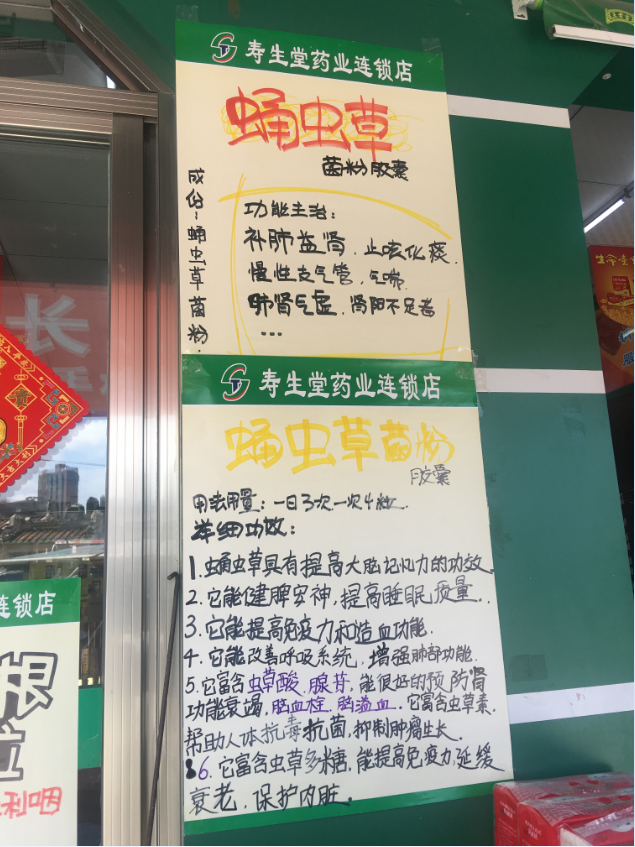 寿生堂药业连锁店
蛹虫草
菌粉胶囊
成份:蛹虫草菌粉.
功能主治:
补肺益肾,止咳化痰.
慢性支气管,气喘
肺肾气虚,肾阳不足者
...
寿生堂药业连锁店
蛹虫草菌粉
胶囊
用法用量:一日3次一次4粒.
详细功效:
1.蛹虫草具有提高大脑记忆力的功效.
2.它能健脾安神,提高睡眠质量.
3.它能提高免疫力和造血功能.
4.它能改善呼吸系统,增强肺部功能.
5.它富含虫草酸.腺苷,能很好的预防肾
功能衰竭,脑血栓,脑溢血.它富含虫草素.
帮助人体抗毒抗菌,抑制肿瘤生长.
6.它富含虫草多糖,能提高免疫力,延缓
衰老,保护内脏.
连锁店
根
利咽
长
生命